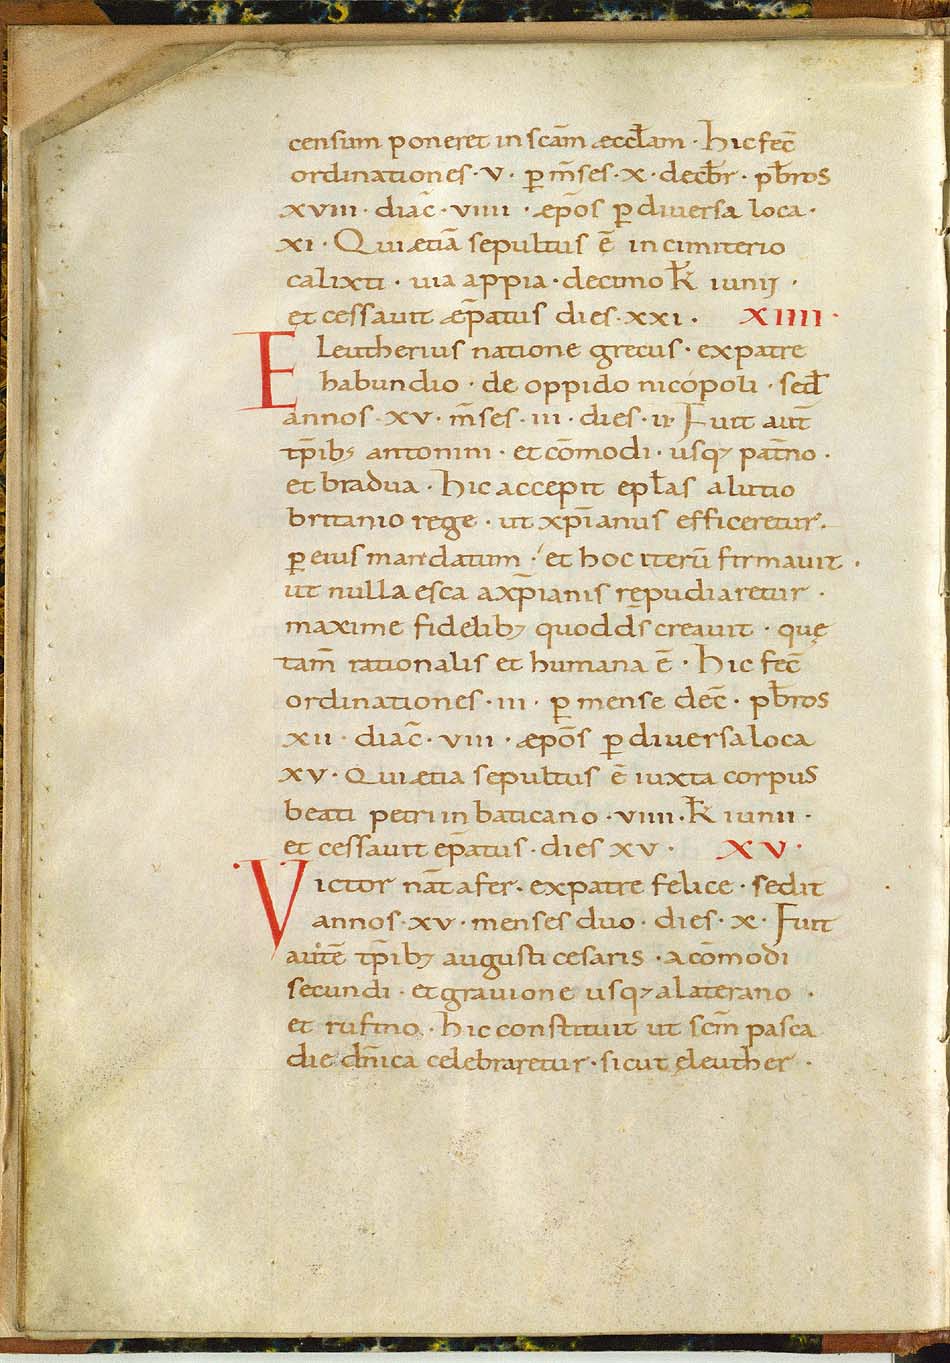 censum poneret in scām æccłam · Hic fec̄
ordinationes · v · ꝑ m̄ses · x · decb̄r · pb̄ros
xviii · diac̄ · viiii · æpōs ꝑ diuersa loca ·
xi · Qui etiā sepultus ē in cimiterio
calixti · uia appia · decimo k̄ iunij ·
et cessauit æp̄atus dies · xxi · XIIII ·
Eleutherius natione grecus · ex patre
habundio · de oppido nicopoli · sed̄
annos · xv · m̄ses · iii · dies · ii · Fuit aut̄
tp̄ib; antonini · et cōmodi · usq; pat̄no ·
et bradua · Hic accepit epłas a lutio
britanio rege · ut xp̄ianus efficeretur ·
ꝑ eius mandatum · et hoc iterū firmauit ·
ut nulla esca a xp̄ianis repudiaretur ·
maxime fidelib; quod ds̄ creauit · quę
tam̄ rationalis et humana ē · Hic fec̄
ordinationes · iii · ꝑ mense dec̄ · pb̄ros
xii · diac̄ · viii · æpōs ꝑ diuersa loca
xv · Qui etia sepultus ē iuxta corpus
beati petri in baticano · viiii · k̄ iunii ·
et cessauit ep̄atus · dies xv · XV ·
Victor nat̄ afer · ex patre felice · sedit
annos · xv · menses duo · dies · x · Fuit
autē tp̄ib; augusti cesaris · a cōmodi
secundi · et grauione usq; a laterano ·
et rufino · hic constituit ut scm̄ pasca
die dn̄ica celebraretur · sicut eleuther ·